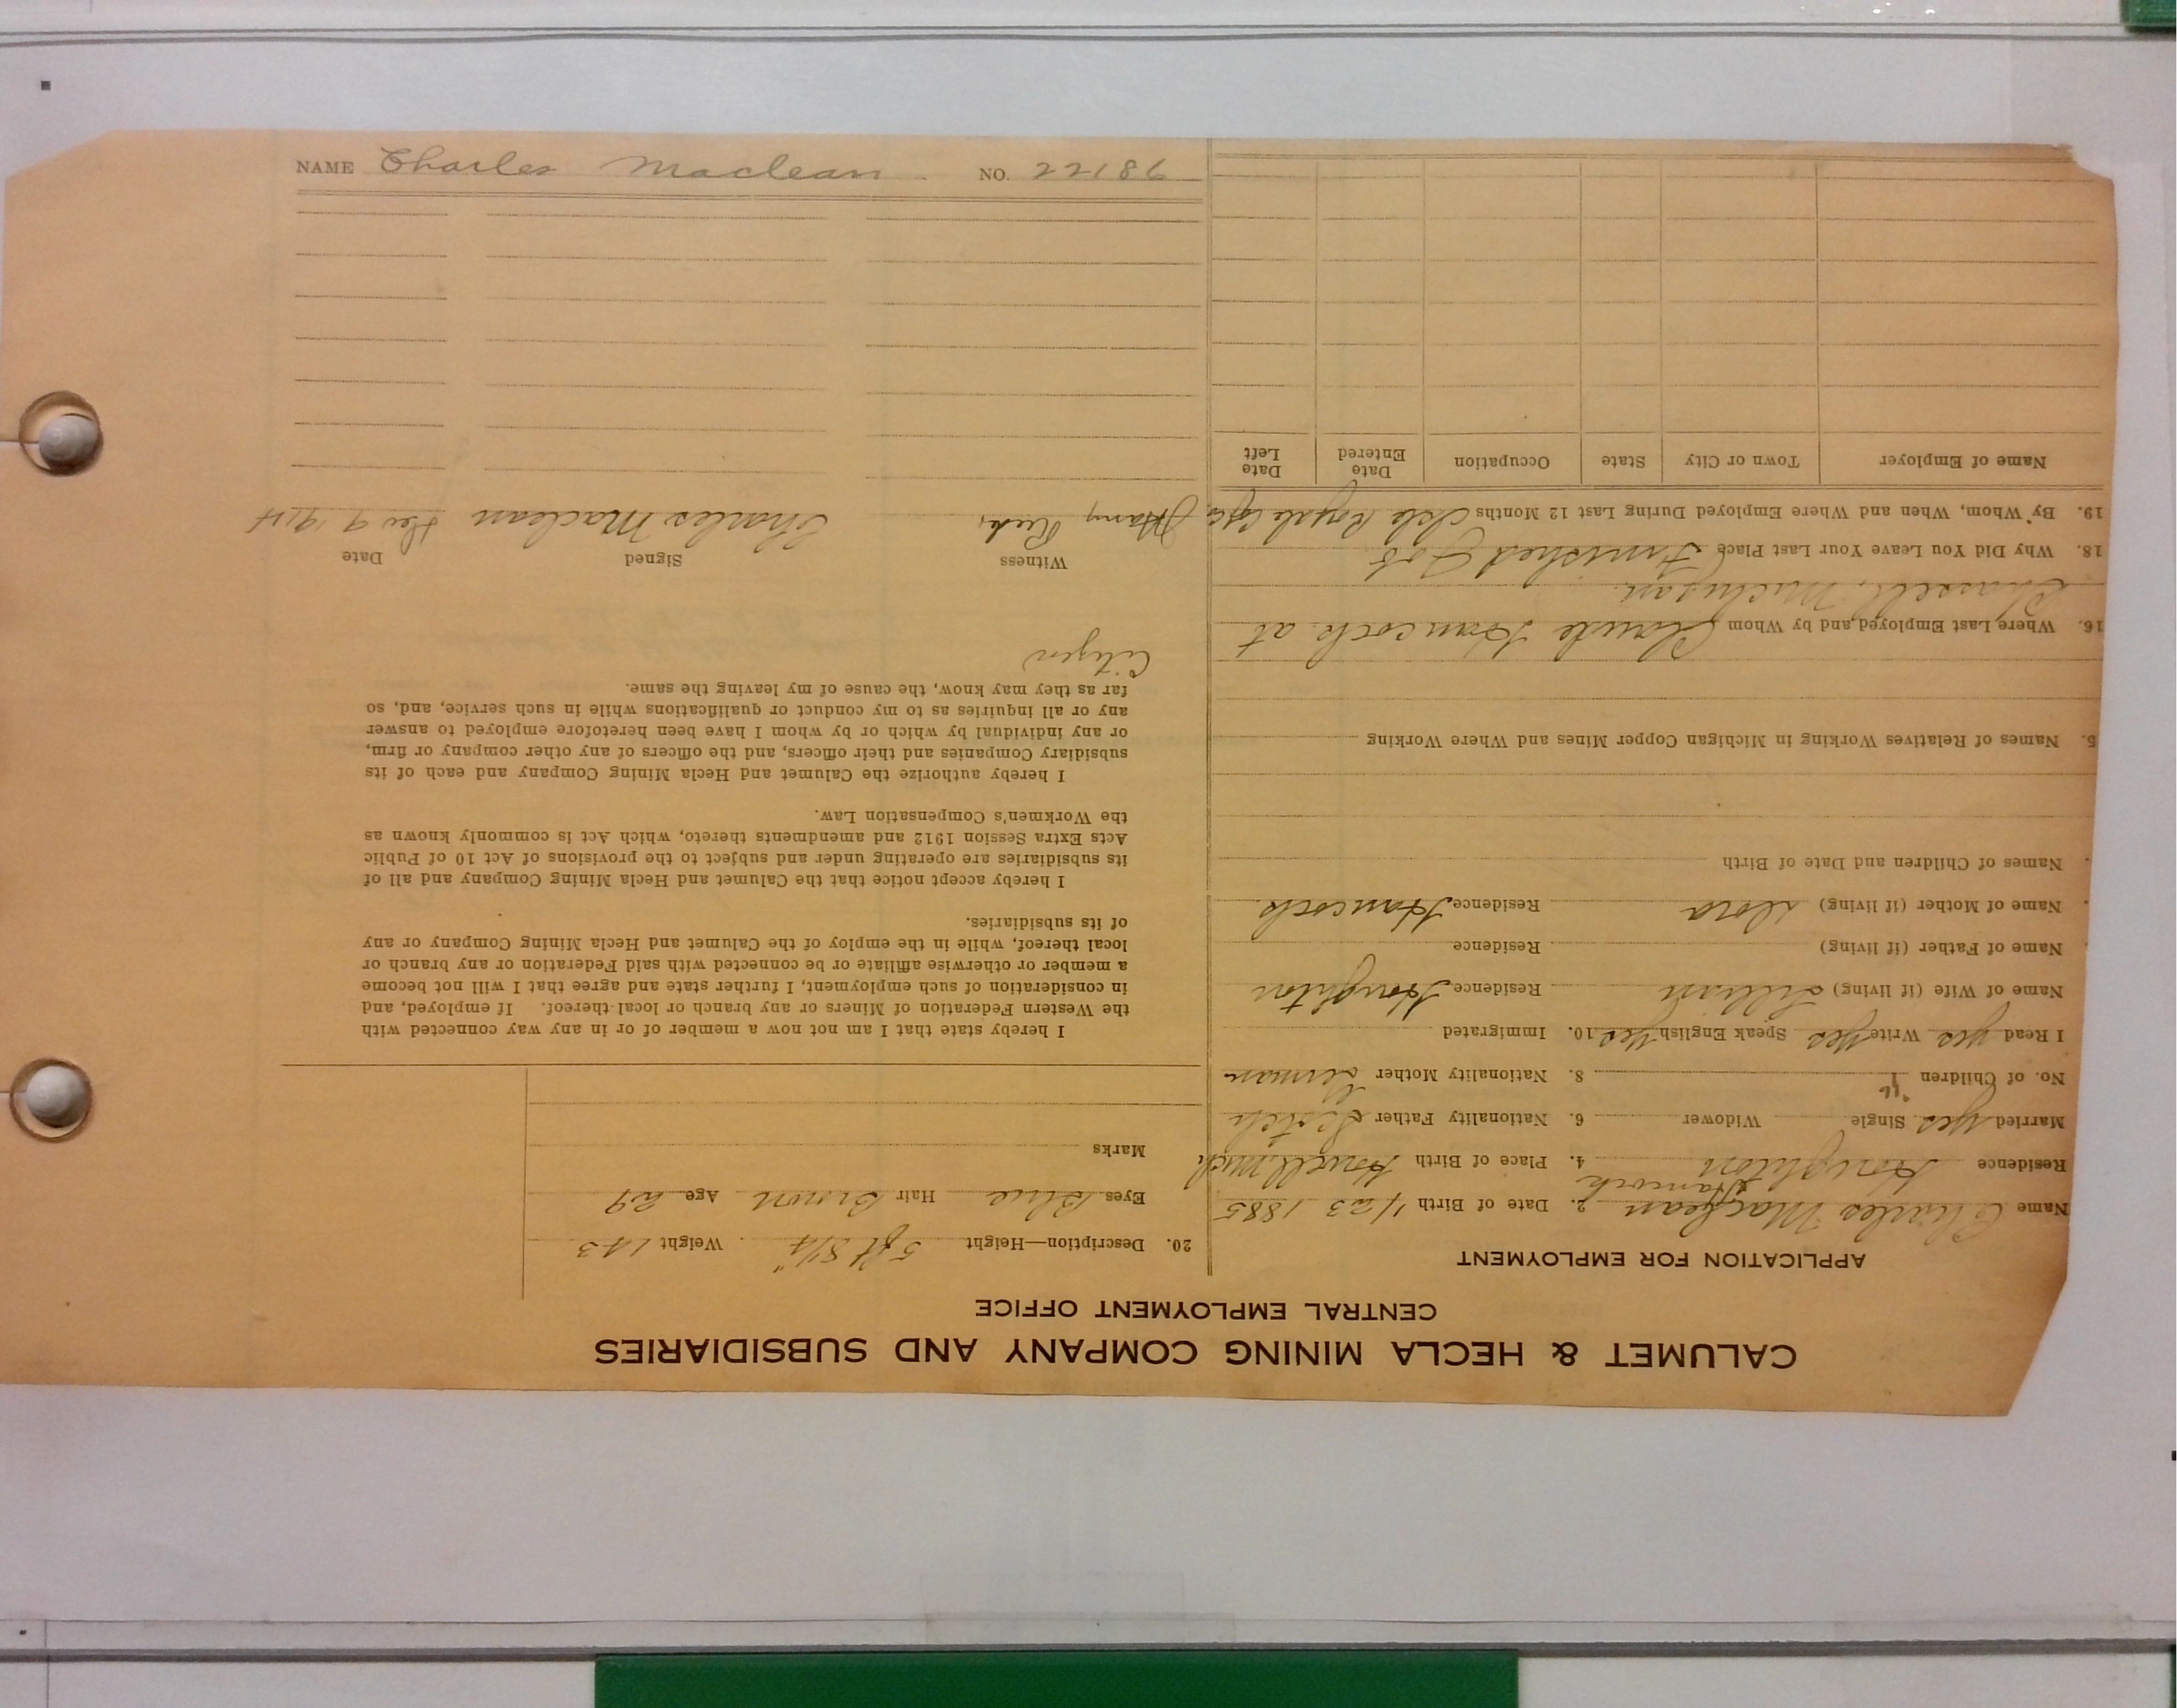 CALUMET & HECLA MINING COMPANY AND SUBSIDIARIES
CENTRAL EMPLOYMENT OFFICE
APPLICATION FOR EMPLOYMENT
Name Charles MacLean 2. Date of Birth 1/23 1885
Hancock
Residence Houghton 4. Place of Birth Howell Mich
Married yes Single Widower 6. Nationality Father Scotch
No. of Children 8. Nationality Mother German
I Read yes Write yes Speak English yes 10. Immigrated
Name of Wife (if living) Lillian Residence Houghton
Name of Father (if living) Residence
Name of Mother (if living) Dora Residence Hancock
Names of Children and Date of Birth
5. Names of Relatives Working in Michigan Copper Mines and Where Working
16. Where Last Employed and by Whom Claude Hancock at
Chassell, Michigan.
18. Why Did You Leave Your Last Place Finished Job
19. By Whom, When and Where Employed During Last 12 Months Isle Royale
Name of Employer Town or City State Occupation Date Entered Date Left
20. Description—Height 5 ft 8 1/4" Weight 143
Eyes Blue Hair Brown Age 29
Marks
I hereby state that I am not now a member of or in any way connected with
the Western Federation of Miners or any branch or local thereof. If employed, and
in consideration of such employment, I further state and agree that I will not become
a member or otherwise affiliate or be connected with said Federation or any branch or
local thereof, while in the employ of the Calumet and Hecla Mining Company or any
of its subsidiaries.
I hereby accept notice that the Calumet and Hecla Mining Company and all of
its subsidiaries are operating under and subject to the provisions of Act 10 of Public
Acts Extra Session 1912 and amendments thereto, which Act is commonly known as
the Workmen's Compensation Law.
I hereby authorize the Calumet and Hecla Mining Company and each of its
subsidiary Companies and their officers, and the officers of any other company or firm,
or any individual by which or by whom I have been heretofore employed to answer
any or all inquiries as to my conduct or qualifications while in such service, and, so
far as they may know, the cause of my leaving the same.
Citizen
Witness Signed Date
Harry Charles Maclean Dec 9 1914
NAME Charles Maclean NO. 22186